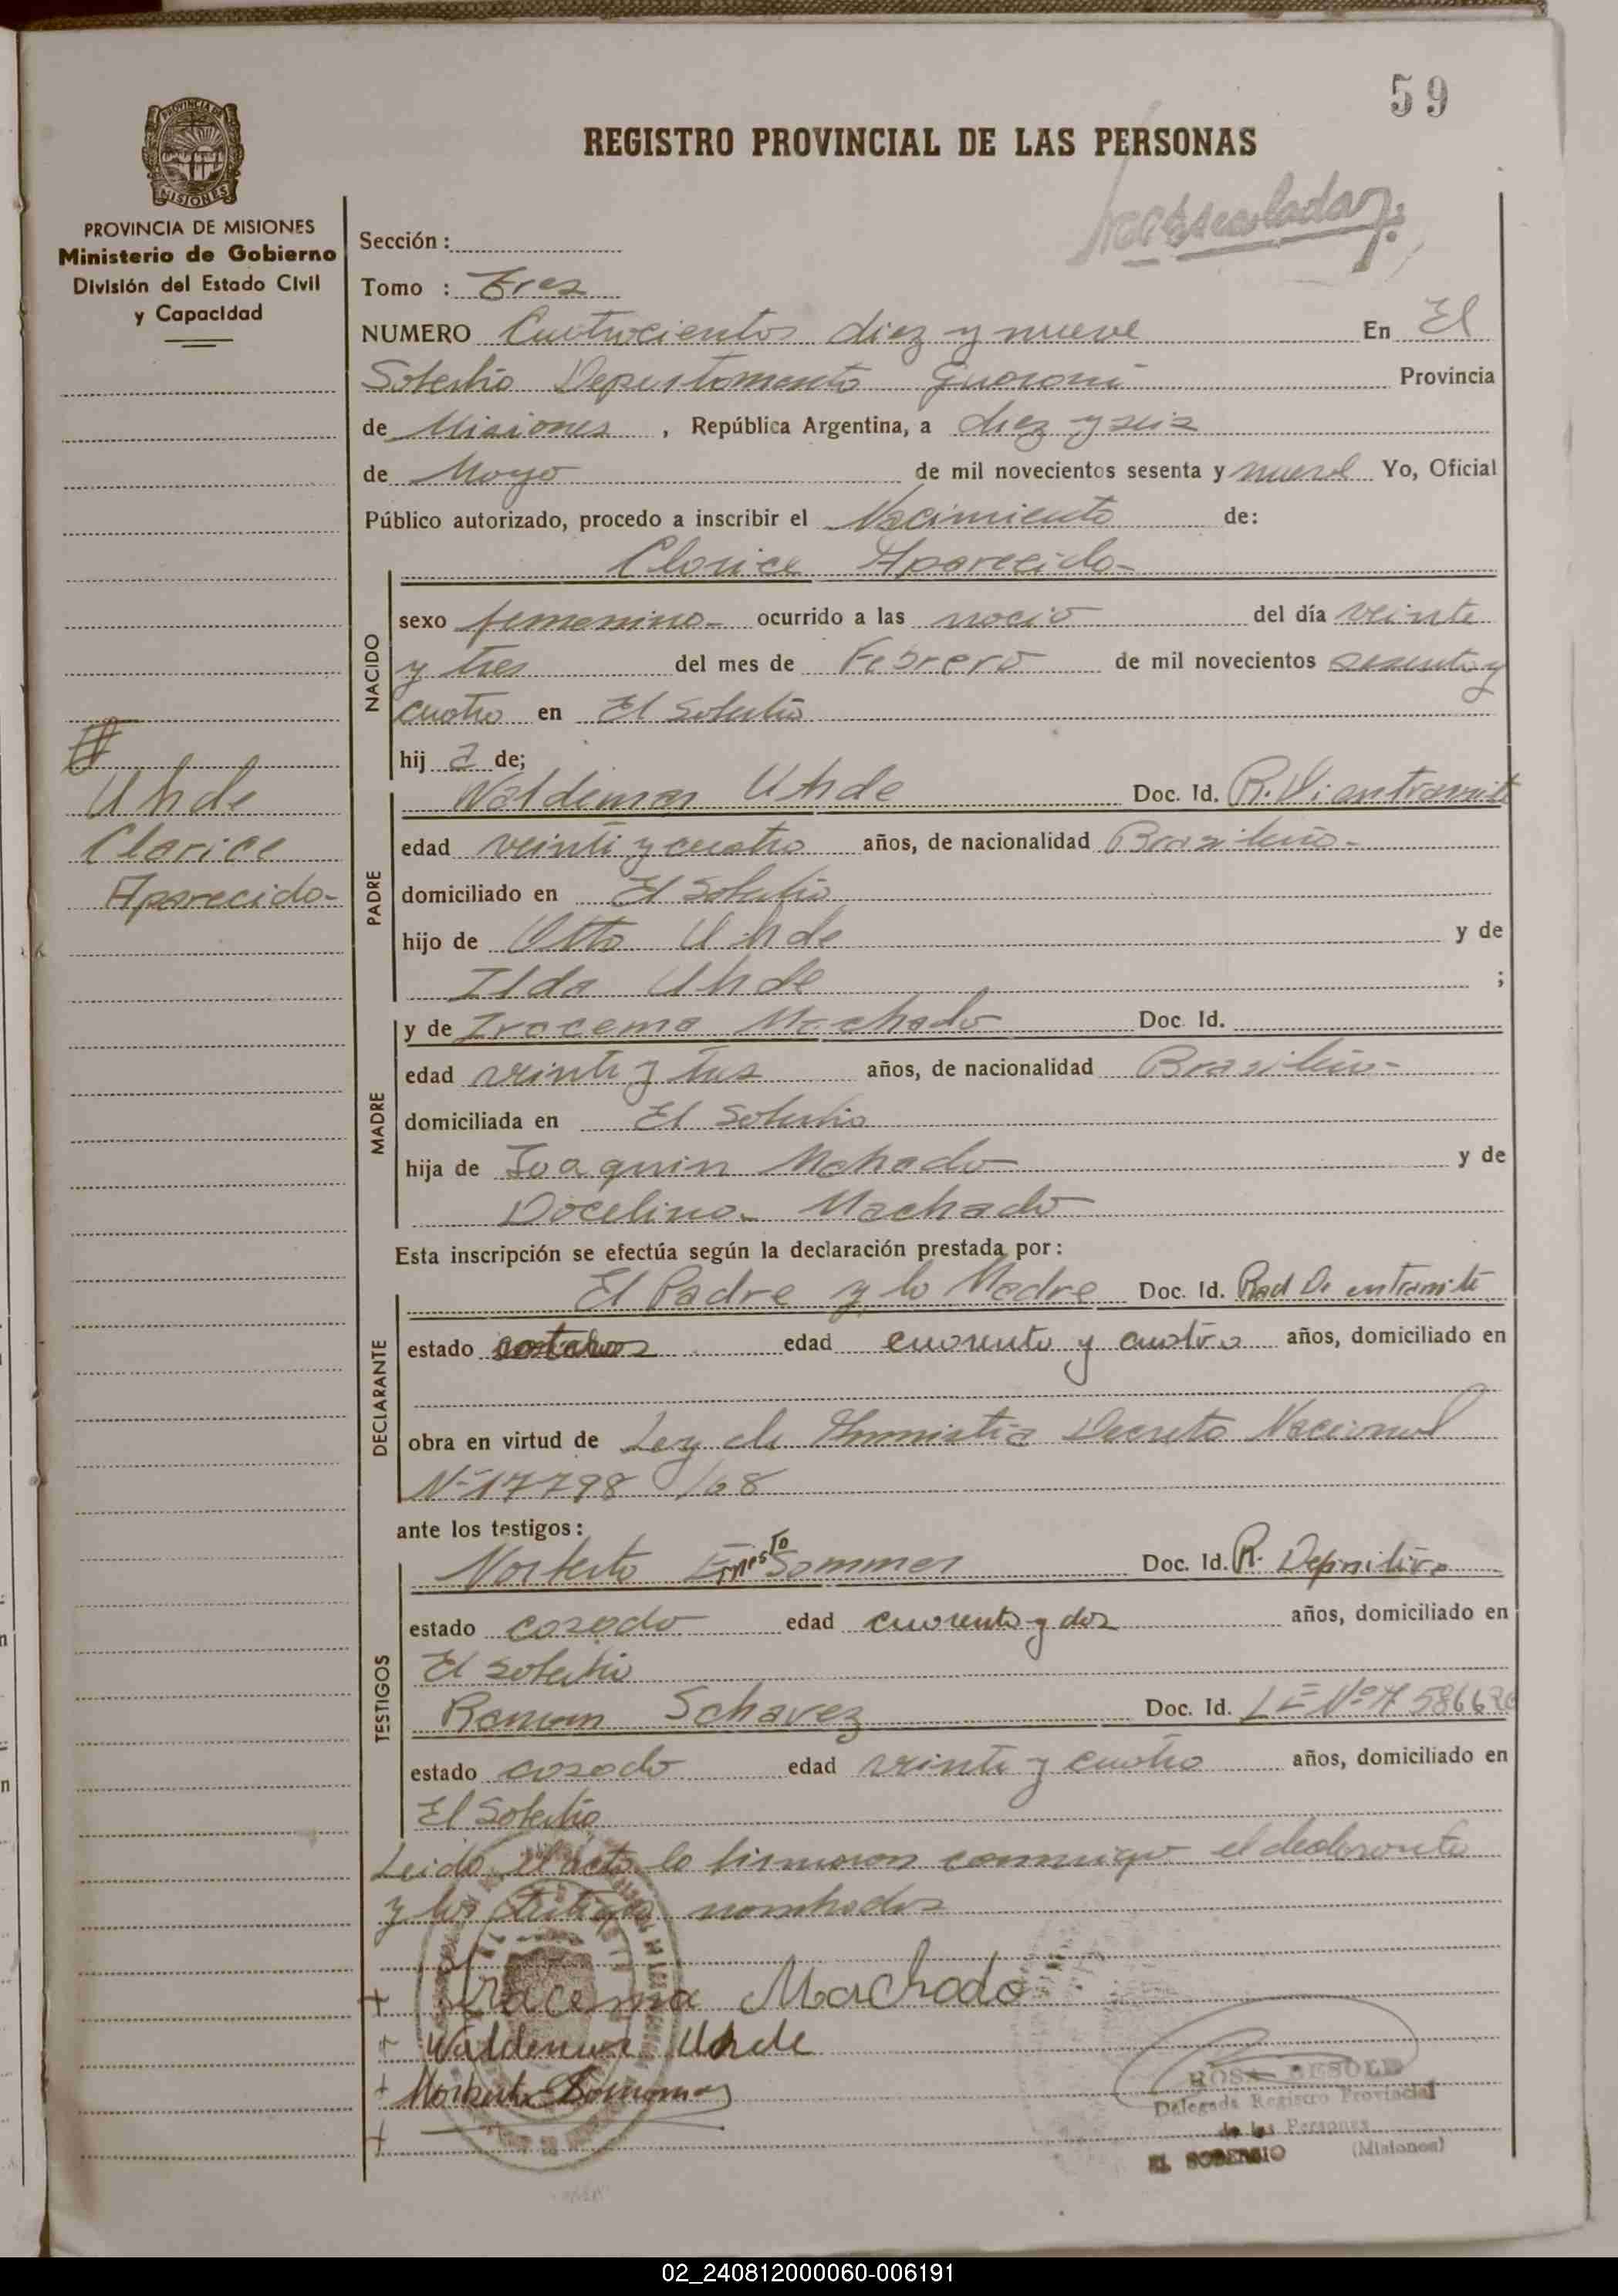 59
REGISTRO PROVINCIAL DE LAS PERSONAS
PROVINCIA DE MISIONES
Ministerio de Gobierno
División del Estado Civil
y Capacidad
Sección :
Tomo : Tres
NUMERO Cuatrocientos diez y nueve En El
Soberbio Departamento Guarani Provincia
de Misiones , República Argentina, a diez y seis
de Mayo de mil novecientos sesenta y nueve Yo, Oficial
Público autorizado, procedo a inscribir el Nacimiento de:
Clarice Aparecida
NACIDO
sexo femenino ocurrido a las nació del día veinte
y tres del mes de Febrero de mil novecientos sesenta y
cuatro en El Soberbio
hij a de;
Uhde
Clarice
Aparecida
PADRE
Waldemar Uhde Doc. Id. R. Di. en tramite
edad veinti y cuatro años, de nacionalidad Brasileño
domiciliado en El Soberbio
hijo de Otto Uhde y de
Ilda Uhde ;
MADRE
y de Iracema Machado Doc. Id.
edad veinti y tres años, de nacionalidad Brasileña
domiciliada en El Soberbio
hija de Joaquin Machado y de
Docelina Machado
Esta inscripción se efectúa según la declaración prestada por:
DECLARANTE
El Padre y la Madre Doc. Id. Rad Di en tramite
estado edad cuarenta y cuatro años, domiciliado en
obra en virtud de Ley de Amnistia Decreto Nacional
Nº 17798/68
ante los testigos:
TESTIGOS
Norberto Ernesto Sommer Doc. Id. R. Definitiva
estado casado edad cuarenta y dos años, domiciliado en
El Soberbio
Ramon Schavez Doc. Id. L E Nº 7 5866
estado casado edad veinti y cuatro años, domiciliado en
El Soberbio
Leido el acta lo firmaron conmigo el declarante
y los testigos nombrados
Iracema Machado
Waldemar Uhde
Norberto E Sommer
ROSA BESOLD
Delegada Registro Provincial
de las Personas
EL SOBERBIO (Misiones)
02_240812000060-006191